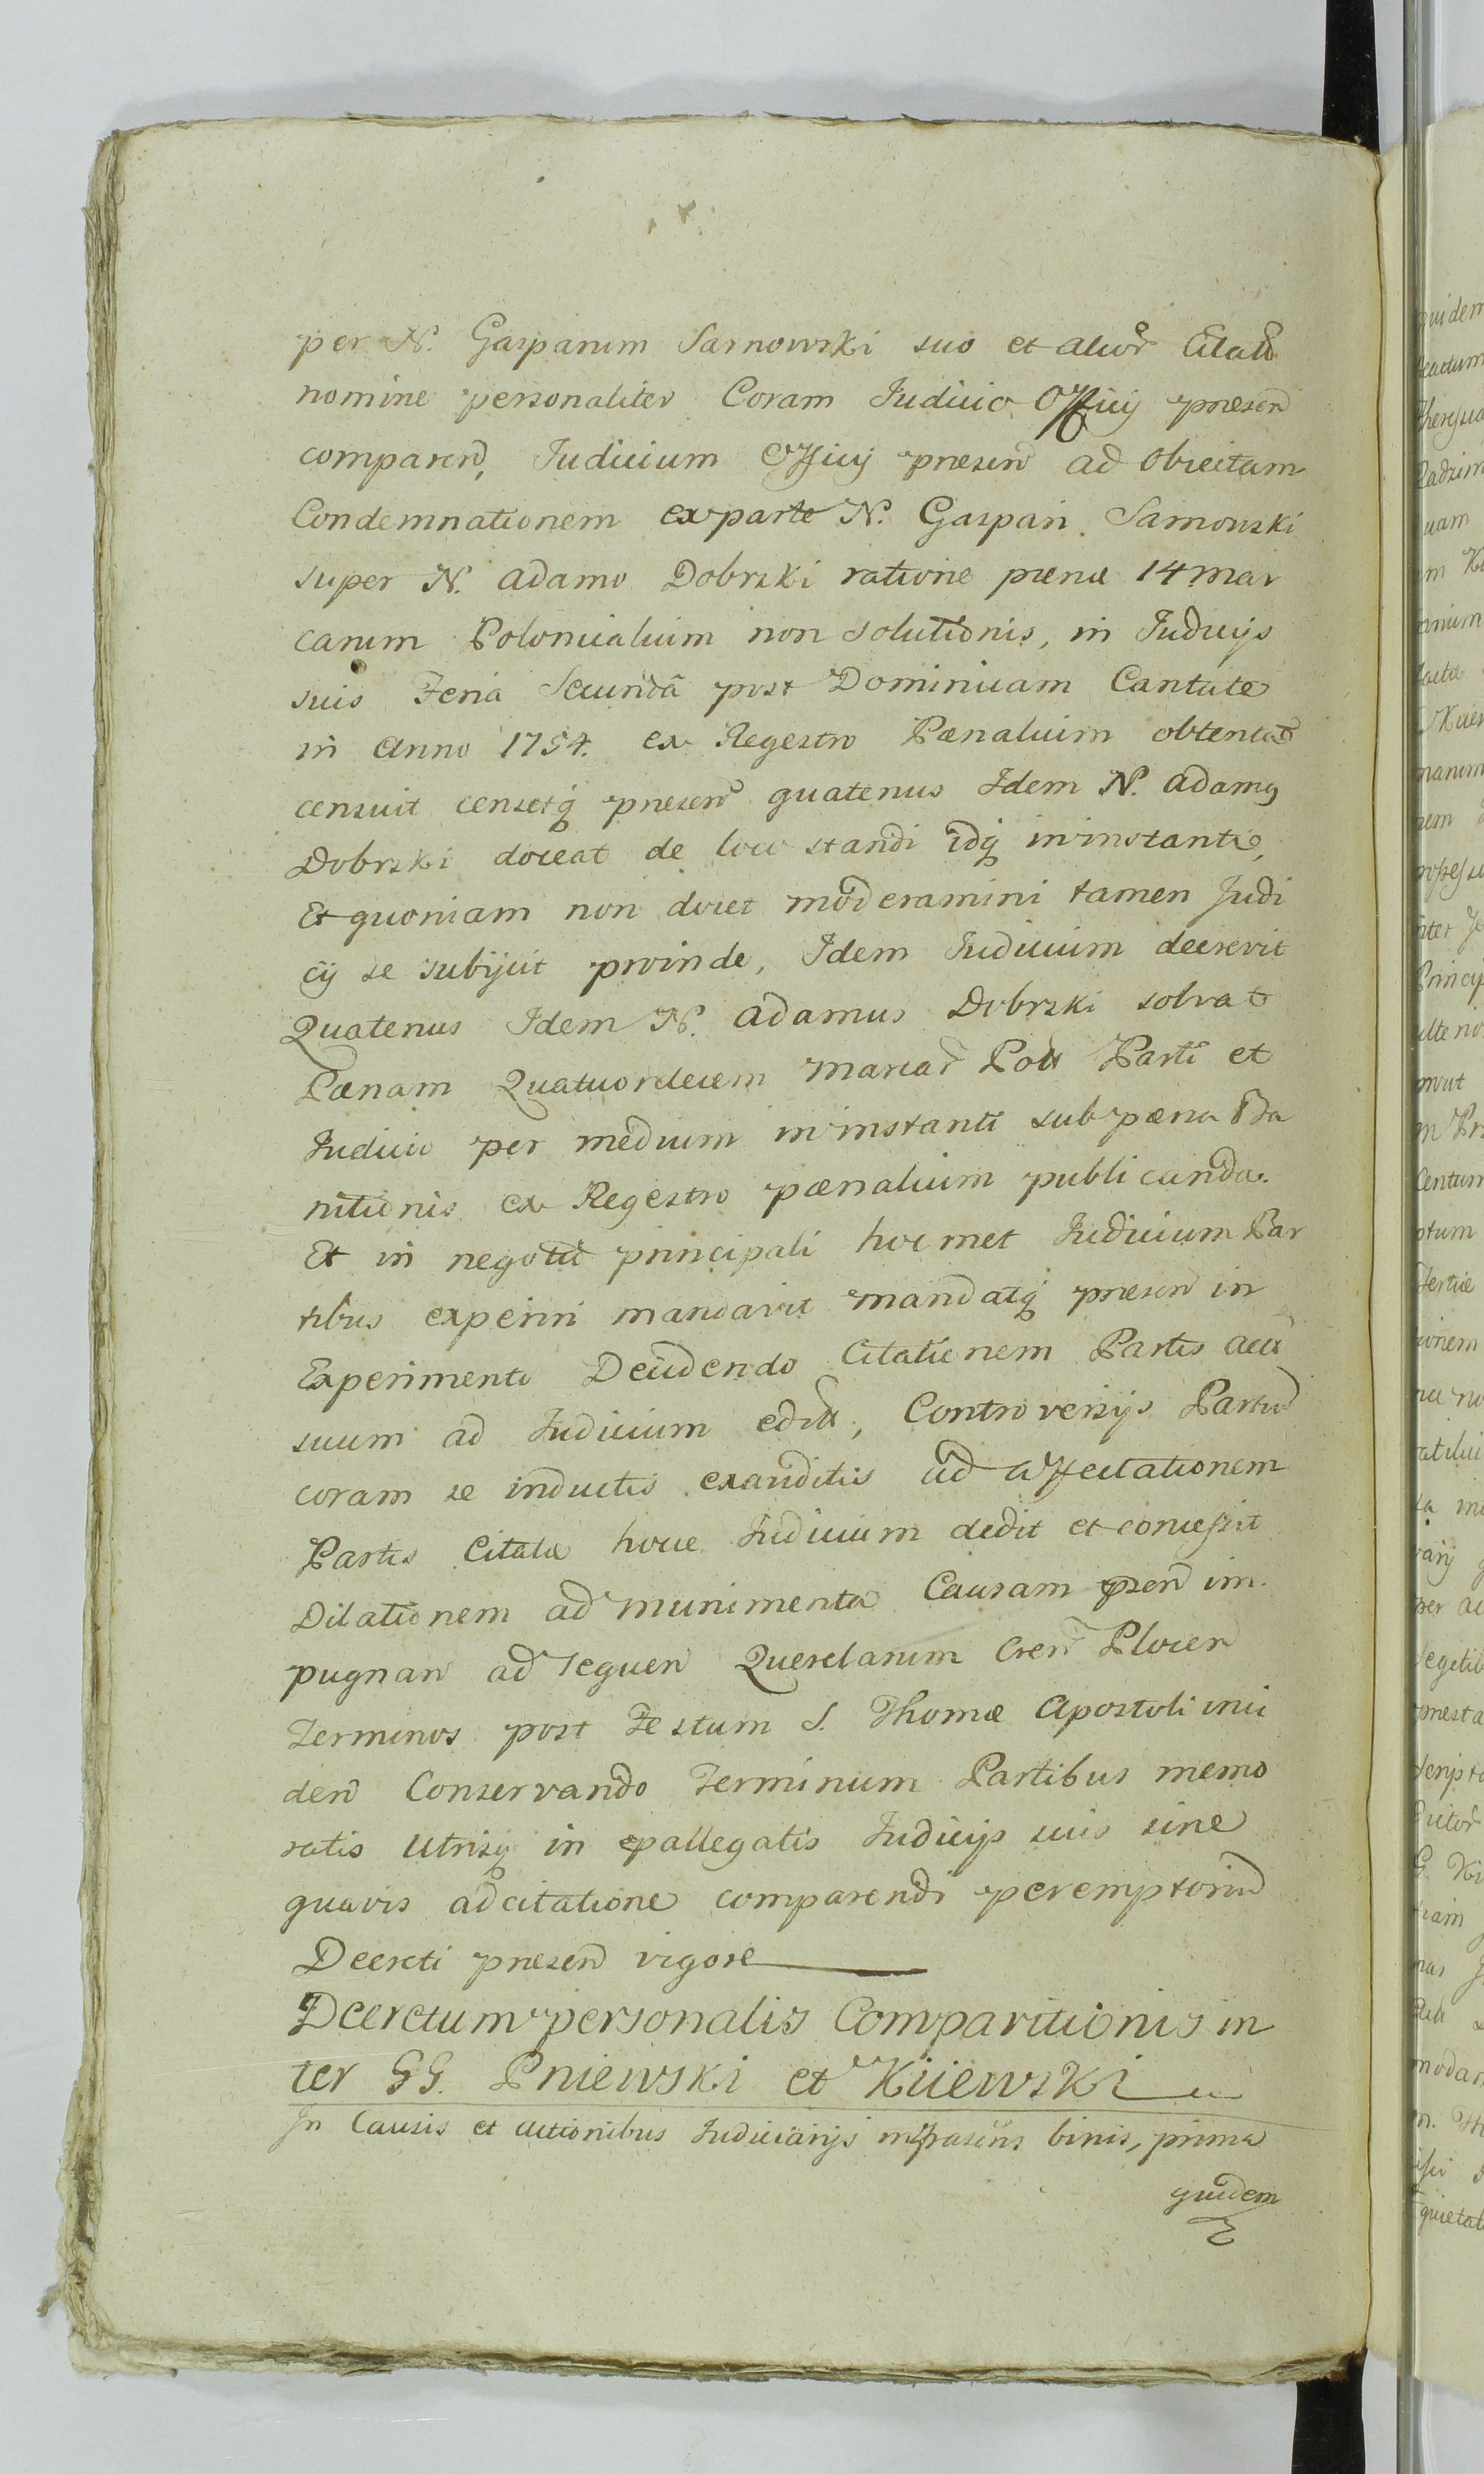 per N. Gasparum Sarnowski suo et alior Citatt
nomine personaliter Coram Judicio Officij praesen
comparen, Judicium Officij praesen ad Obiectam
Condemnationem ex parte N. Gaspari Sarnowski
super N. Adamo Dobrski ratione paenae 14 mar
carum Polonicalium non solutionis, in Judicijs
suis Feria Secunda post Dominicam Cantate
in Anno 1754. ex Regestro Paenalium obtentae
censuit censetq praesen quatenus Idem N. Adamus
Dobrski doceat de loco standi idq in instanti,
Et quoniam non docet moderamini tamen Judi
cij se subijcit proinde, Idem Judicium decrevit
Quatenus Idem N. Adamus Dobrski solvat
Paenam Quatuordecem marcar Poll Parti et
Judicio per medium in instanti sub paena Ba
nitionis ex Regestro paenalium publicanda.
Et in negotio principali hocmet Judicium Par
tibus experiri mandavit mandatq praesen in
Experimento Deindendo Citationem Partis act
suum ad Judicium editt, Controversijs Partiu
coram se inductis exauditis ad affectationem
Partis Citatae hocce Judicium dedit et concessit
Dilationem ad munimenta Causam praesen im
pugnan ad sequen Querelarum Cren Plocen
Terminos post Festum S. Thomae Apostoli inci
den Conservando Terminum Partibus memo
ratis Utrisq in praeallegatis Judicijs suis sine
quavis adcitatione comparendi peremptoriu
Decreti praesen vigore
Decretum personalis Comparitionis in
ter GG. Pniewski et Kiiewski
In Causis et actionibus Judiciarijs infrascns binis, prima
quidem